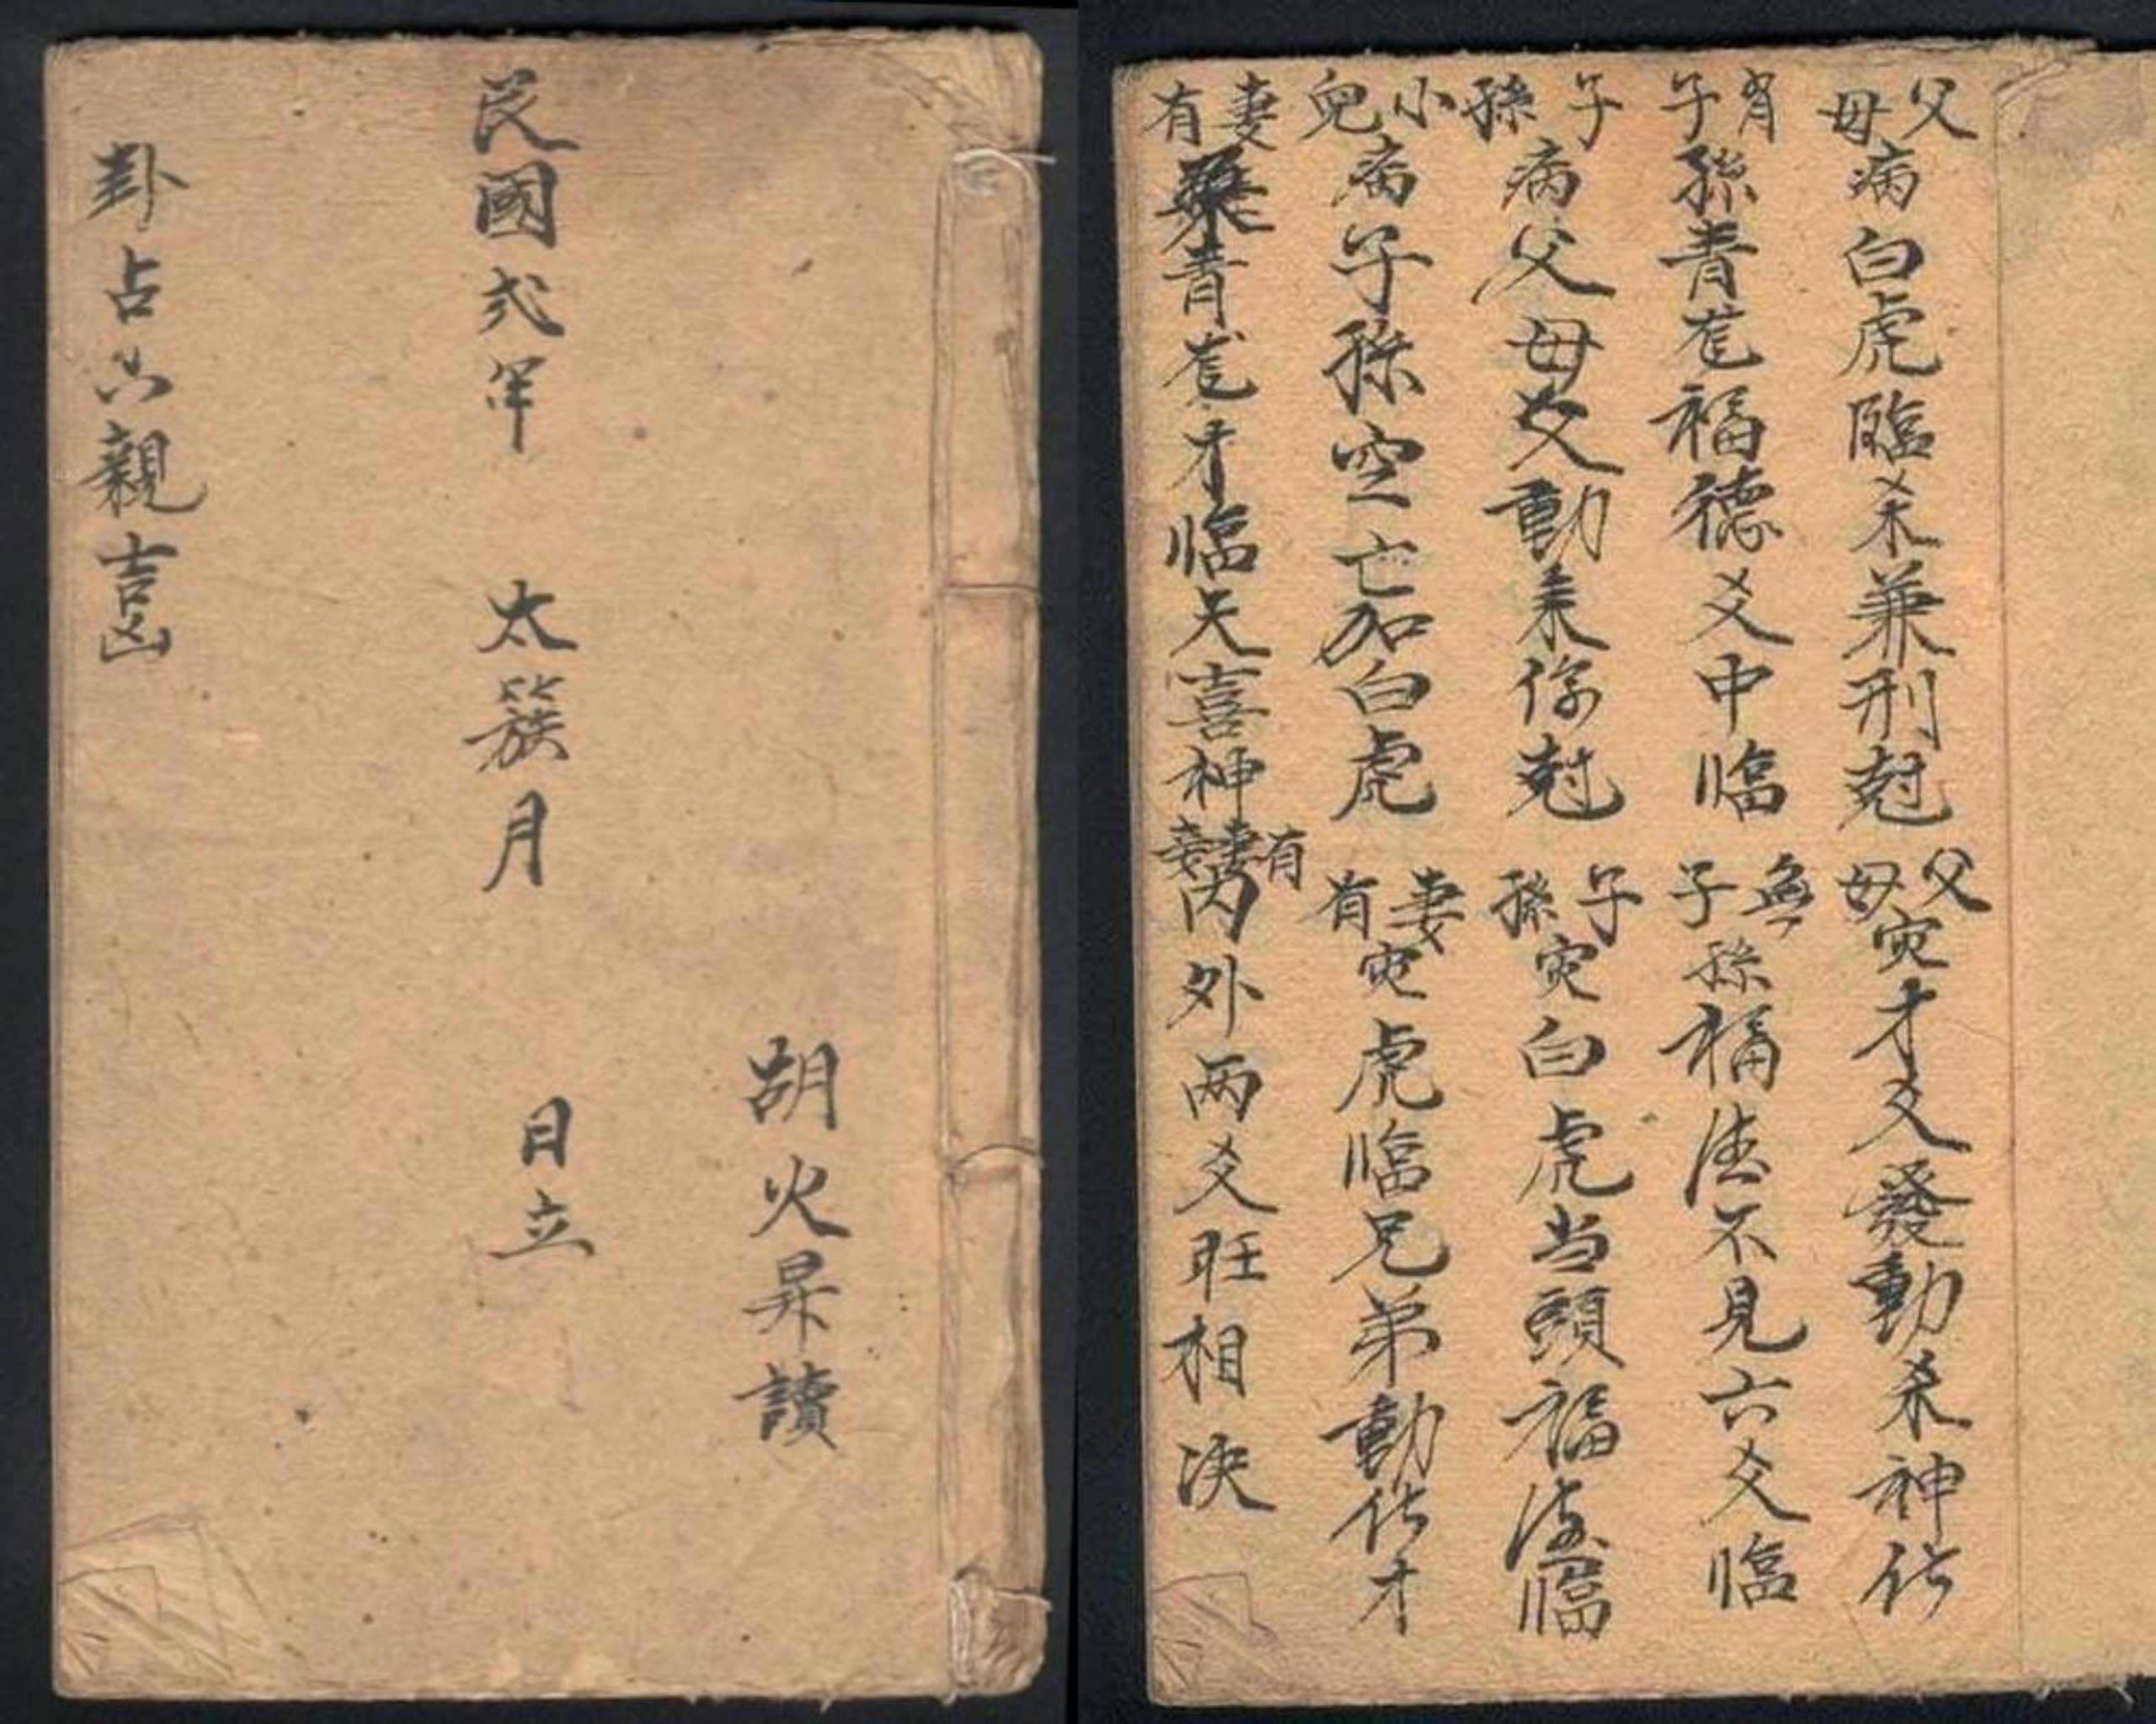 胡火昇讀
民國弍年 太簇月 日立
卦占六親吉凶
父母病白虎臨爻来兼刑尅 父母灾才爻發動来神化
有子孫青竜福德爻中临 無子孫福德不見六爻臨
子孫病父母爻動来傷尅 子孫灾白虎当頭福德臨
小兒病子孫空亡加白虎 妻有灾虎临兄弟動化才
妻有青竜才临天喜神 有妻妾内外両爻旺相决